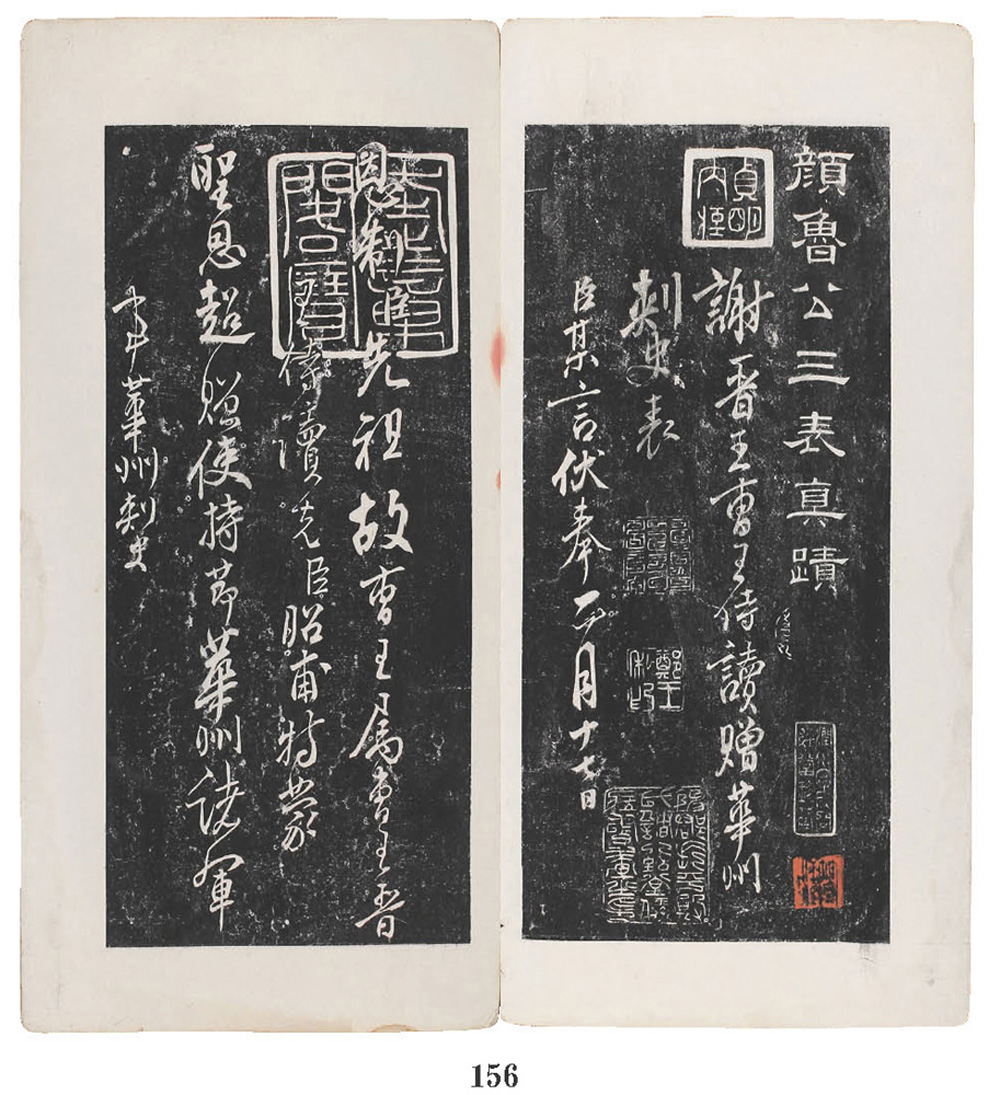 顏魯公三表真蹟
謝晉王曹王侍讀贈華州
刺史表
臣某言伏奉正月十七日
恩制臣先祖故曹王屬曹王晉
侍讀先臣昭甫特蒙
聖恩超贈使持節華州諸軍
事華州刺史
貞明
內極
鄭王
156